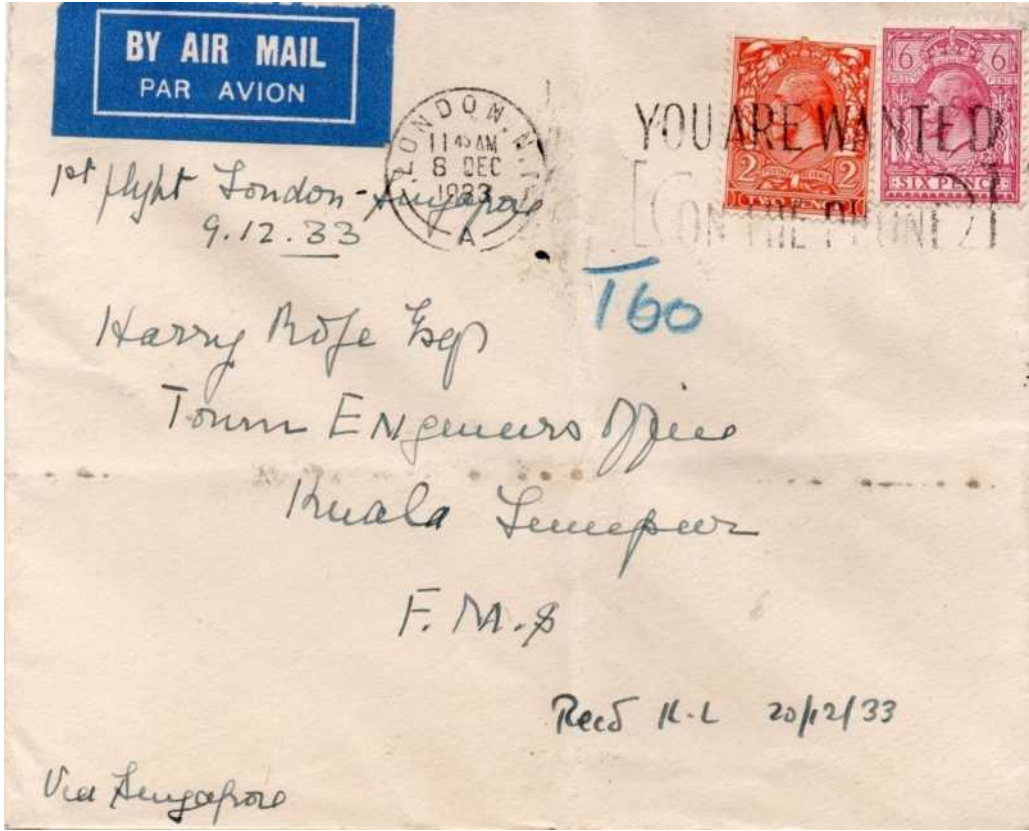 BY AIR MAIL
PAR AVION
LONDON. N.1
11 45 AM
8 DEC
1933
A
YOU ARE WANTED
ON THE PHONE
2 2
TWO PENCE
6 6
SIX PENCE
1st flight London - Singapore
9.12.33
T60
Harry Rofe Esq
Town Engineers Office
Kuala Lumpur
F.M.S
Recd K.L 20/12/33
Via Singapore